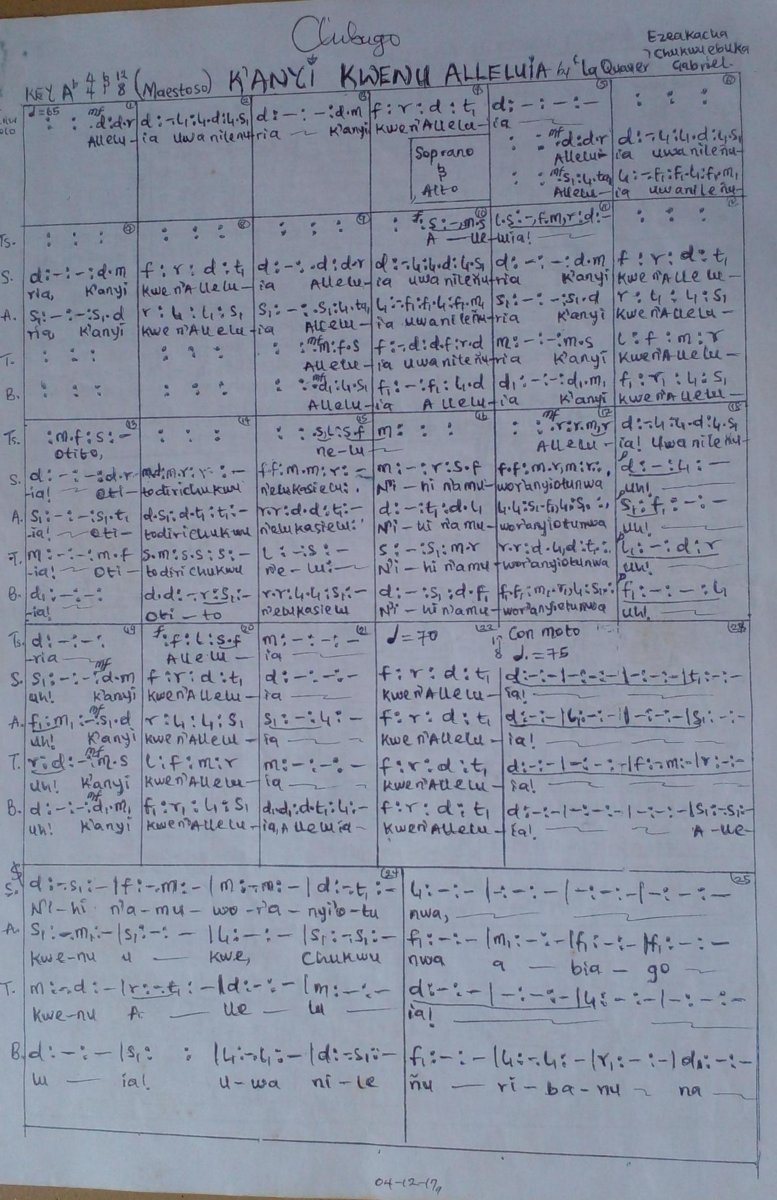 Chibugo
Ezeakacha
Chukwuebuka
Gabriel.
KEY Ab 4/4 & 12/8 (Maestoso) K'ANYI KWENU ALLELUIA by La Quaver
♩=65 : : mf .d:d.r d:-.l₁:l₁.d:l₁.s₁ d:-:-:d.m f:r:d:t₁ d:-:-:- : : :
Allelu- ia uwa nilenu- ria K'anyi Kwen'Allelu- ia
mf : : .d:d.r d:-.l₁:l₁.d:l₁.s₁
Soprano & Alto
Allelu- ia uwa nileñu-
mf : : .s₁:l₁.ta₁ l₁:-.f₁:f₁.l₁:f₁.m₁
Allelu- ia uwanileñu-
Ts. : : : : : : : : : f : .s:-.m.s l.s:-.f.m,r:d:- : : :
A — lle- luia!
S. d:-:-:d.m f:r:d:t₁ d:-:.d:d.r d:-.l₁:l₁.d:l₁.s₁ d:-:-:d.m f:r:d:t₁
ria, K'anyi Kwen'Allelu- ia Allelu- ia uwa nilenu- ria K'anyi Kwen'Allelu-
A. s₁:-:-:s₁.d r:l₁:l₁:s₁ s₁:-:.s₁:l₁.ta₁ l₁:-.f₁:f₁.l₁:f₁.m₁ s₁:-:-:s₁.d r:l₁:l₁:s₁
ria K'anyi Kwen'Allelu- ia Allelu- ia uwa nileñu- ria K'anyi Kwen'Allelu-
T. : : : : : : mf : : .m:f.s f:-.d:d.f:r.d m:-:-:m.s l:f:m:r
Allelu- ia uwa nileñu- ria K'anyi Kwen'Allelu-
B. : : : : : : mf : : .d₁:l₁.s₁ f₁:-:f₁:l₁.d d₁:-:-:d₁.m₁ f₁:r₁:l₁:s₁
Allelu- ia Allelu- ia K'anyi Kwen'Allelu-
Ts. :m.f:s:- : : : : : s.l:s.f m: : : mf : : .r:r.m,r d:-.l₁:l₁.d:l₁.s₁
Otito, ne-lu- Allelu- ia! Uwa nilenu-
S. d:-:-:d.r m.d:m.r:r:- f.f:m.m:r: m:-:r:s.f f.f:m.r,m:r:, d:-:l₁:-
-ia! Oti- todirichukwu n'elukasielu: N'i-hi namu- wor'anyiotunwa uh!
A. s₁:-:-:s₁.t₁ d.s₁:d.t₁:t₁:- r.r:d.d:t₁: d:-:t₁:d.l₁ s₁:f₁:-:-
-ia! Oti- todirichukwu n'elukasielu: N'i-hi n'amu- wor'anyiotunwa uh!
T. m:-:-:m.f s.m:s.s:s:- l:-:s:- s:-:s₁:m.r r.r:d.l₁,d:t₁: l₁:-:d:r
-ia! Oti- todiri chukwu ne-lu- N'i-hi n'amu- wor'anyiotunwa uh!
B. d₁:-:-: d.d:-.r:s₁:- r.r:l₁.l₁:s₁:- d:-:s₁:d.f₁ f₁:-:-:l₁
-ia! Oti-to n'elukasielu N'i-hi namu- wor'anyiotunwa uh!
Ts. d:-:-: f :f:l:s.f m:-:-:- ♩=70 12/8 Con moto
-ria Allelu- ia ♩.=75
S. s₁:-:-:d.m f:r:d:t₁ d:-:-:- f:r:d:t₁ d:-:-|-:-:-|-:-:-|t₁:-:-
uh! K'anyi Kwen'Allelu- ia Kwen'Allelu- ia!
A. f₁:m₁:-:s₁.d r:l₁:l₁:s₁ s₁:-:l₁:- f:r:d:t₁ d:-:-|l₁:-:-|-:-:-|s₁:-:-
uh! K'anyi Kwen'Allelu- ia Kwen'Allelu- ia!
T. r:d:-:m.s l:f:m:r m:-:-:- f:r:d:t₁ d:-:-|-:-:-|f:-:m:-|r:-:-
uh! K'anyi Kwen'Allelu- ia Kwen'Allelu- ia!
B. d:-:-:d₁.m₁ f₁:r₁:l₁:s₁ d₁.d₁:d.t₁:l₁:- f:r:d:t₁ d:-:-|-:-:-|-:-:-|s₁:-:s₁:-
uh! K'anyi Kwen'Allelu- ia, Alleluia- Kwen'Allelu- ia! A-lle-
S. d:-.s₁:-|f:-.m:-|m:-.m:-|d:-.t₁:- l₁:-:-|-:-:-|-:-:-|-:-:-
N'i-hi n'a-mu-wo-r'a-nyi'o-tu nwa,
A. s₁:-.m₁:-|s₁:-:-|l₁:-:-|s₁:-.s₁:- f₁:-:-|m₁:-:-|f₁:-:-|f₁:-:-
Kwe-nu u — kwe, Chukwu nwa a — bia-go
T. m:-.d:-|r:-.t₁:-|d:-:-|m:-:- d:-:-|-:-:-|l₁:-:-|-:-:-
Kwe-nu A — lle — lu — ia!
B. d:-:-|s₁: :|l₁:-.l₁:-|d:-.s₁:- f₁:-:-|l₁:-.l₁:-|r₁:-:-|d₁:-:-
lu — ia! u-wa ni-le ñu — ri-ba-nu na —
04-12-17